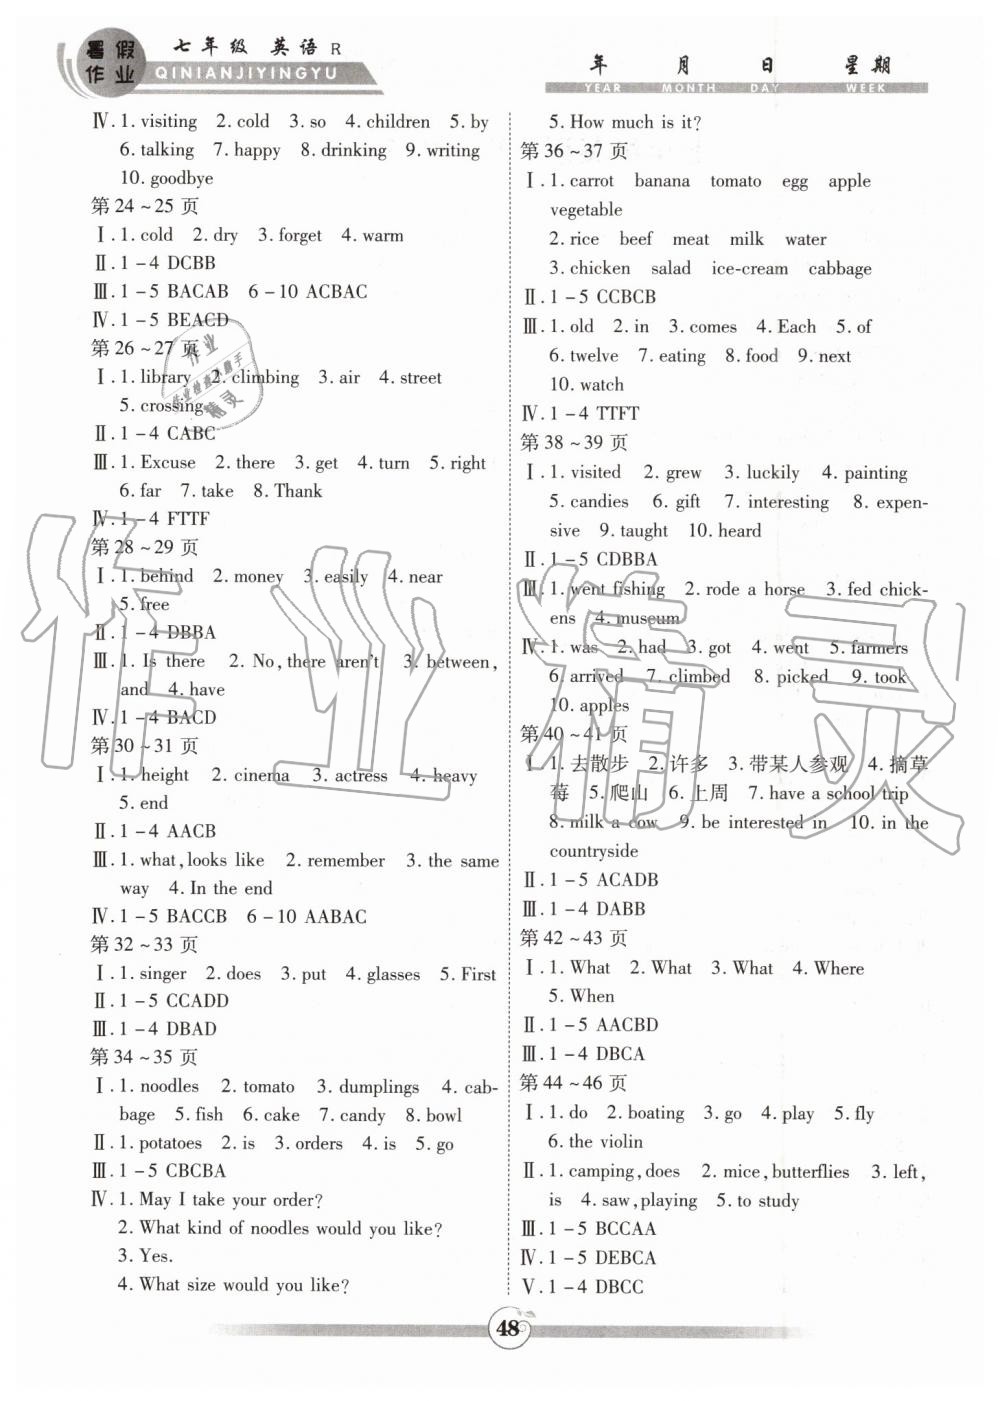 暑假作业
七年级 英语 R
QINIANJIYINGYU
年 月 日 星期
YEAR MONTH DAY WEEK
Ⅳ. 1. visiting 2. cold 3. so 4. children 5. by
6. talking 7. happy 8. drinking 9. writing
10. goodbye
第 24 ~ 25 页
Ⅰ. 1. cold 2. dry 3. forget 4. warm
Ⅱ. 1 - 4 DCBB
Ⅲ. 1 - 5 BACAB 6 - 10 ACBAC
Ⅳ. 1 - 5 BEACD
第 26 ~ 27 页
Ⅰ. 1. library 2. climbing 3. air 4. street
5. crossing
Ⅱ. 1 - 4 CABC
Ⅲ. 1. Excuse 2. there 3. get 4. turn 5. right
6. far 7. take 8. Thank
Ⅳ. 1 - 4 FTTF
第 28 ~ 29 页
Ⅰ. 1. behind 2. money 3. easily 4. near
5. free
Ⅱ. 1 - 4 DBBA
Ⅲ. 1. Is there 2. No, there aren't 3. between,
and 4. have
Ⅳ. 1 - 4 BACD
第 30 ~ 31 页
Ⅰ. 1. height 2. cinema 3. actress 4. heavy
5. end
Ⅱ. 1 - 4 AACB
Ⅲ. 1. what, looks like 2. remember 3. the same
way 4. In the end
Ⅳ. 1 - 5 BACCB 6 - 10 AABAC
第 32 ~ 33 页
Ⅰ. 1. singer 2. does 3. put 4. glasses 5. First
Ⅱ. 1 - 5 CCADD
Ⅲ. 1 - 4 DBAD
第 34 ~ 35 页
Ⅰ. 1. noodles 2. tomato 3. dumplings 4. cab-
bage 5. fish 6. cake 7. candy 8. bowl
Ⅱ. 1. potatoes 2. is 3. orders 4. is 5. go
Ⅲ. 1 - 5 CBCBA
Ⅳ. 1. May I take your order?
2. What kind of noodles would you like?
3. Yes.
4. What size would you like?
5. How much is it?
第 36 ~ 37 页
Ⅰ. 1. carrot banana tomato egg apple
vegetable
2. rice beef meat milk water
3. chicken salad ice-cream cabbage
Ⅱ. 1 - 5 CCBCB
Ⅲ. 1. old 2. in 3. comes 4. Each 5. of
6. twelve 7. eating 8. food 9. next
10. watch
Ⅳ. 1 - 4 TTFT
第 38 ~ 39 页
Ⅰ. 1. visited 2. grew 3. luckily 4. painting
5. candies 6. gift 7. interesting 8. expen-
sive 9. taught 10. heard
Ⅱ. 1 - 5 CDBBA
Ⅲ. 1. went fishing 2. rode a horse 3. fed chick-
ens 4. museum
Ⅳ. 1. was 2. had 3. got 4. went 5. farmers
6. arrived 7. climbed 8. picked 9. took
10. apples
第 40 ~ 41 页
Ⅰ 1. 去散步 2. 许多 3. 带某人参观 4. 摘草
莓 5. 爬山 6. 上周 7. have a school trip
8. milk a cow 9. be interested in 10. in the
countryside
Ⅱ. 1 - 5 ACADB
Ⅲ. 1 - 4 DABB
第 42 ~ 43 页
Ⅰ. 1. What 2. What 3. What 4. Where
5. When
Ⅱ. 1 - 5 AACBD
Ⅲ. 1 - 4 DBCA
第 44 ~ 46 页
Ⅰ. 1. do 2. boating 3. go 4. play 5. fly
6. the violin
Ⅱ. 1. camping, does 2. mice, butterflies 3. left,
is 4. saw, playing 5. to study
Ⅲ. 1 - 5 BCCAA
Ⅳ. 1 - 5 DEBCA
Ⅴ. 1 - 4 DBCC
48
作业精灵